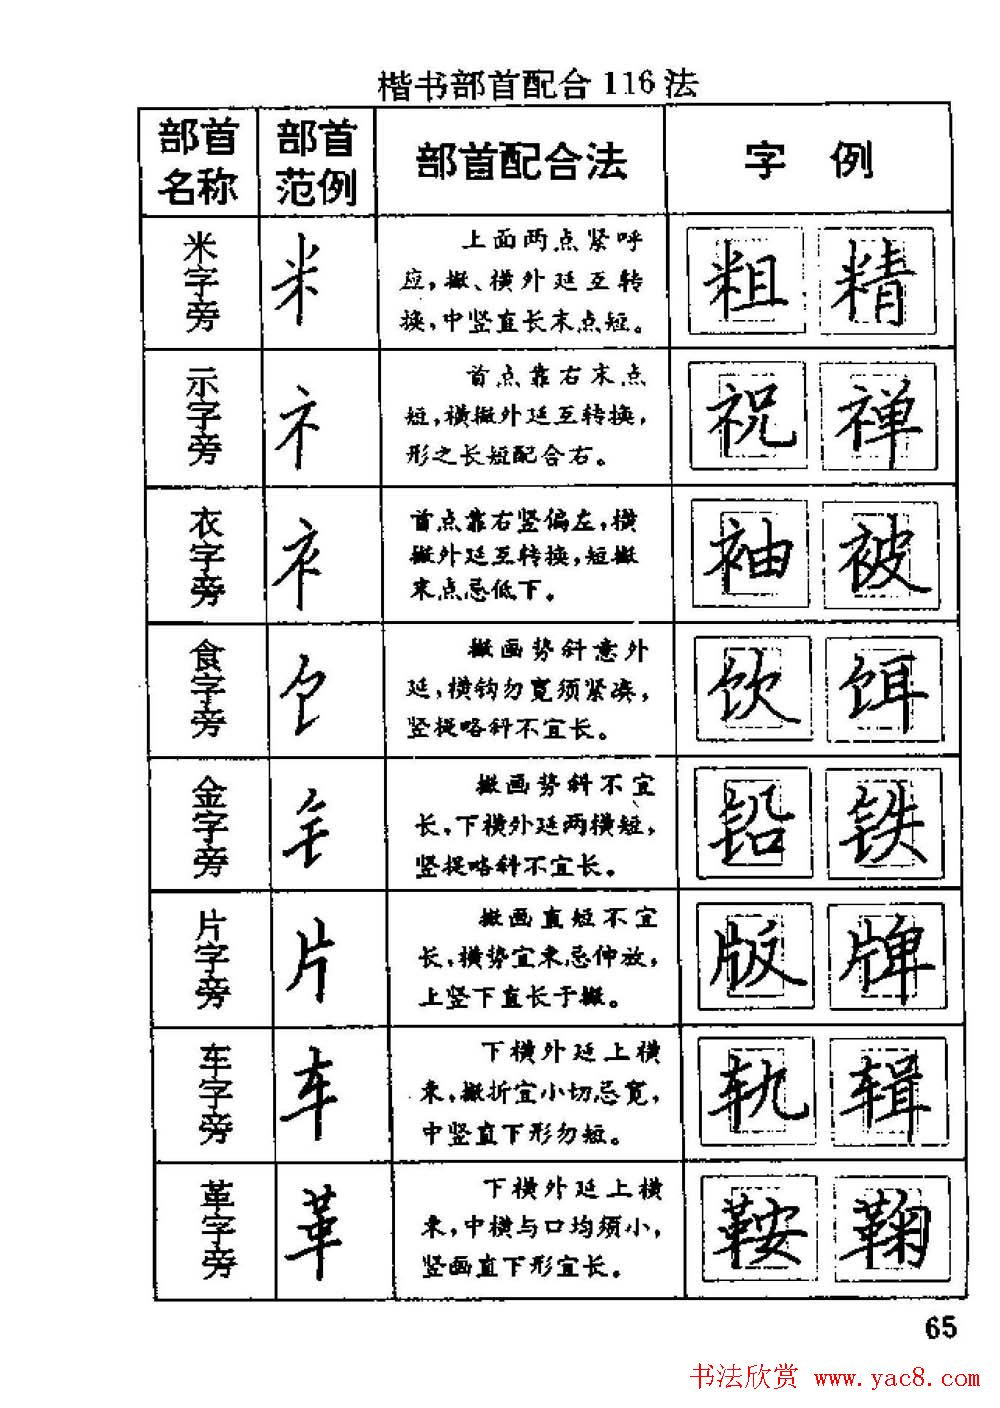 楷书部首配合116法
部首名称 部首范例 部首配合法 字 例
米字旁 米 上面两点紧呼 粗 精
应,撇、横外延互转
换,中竖直长末点短。
示字旁 礻 首点靠右末点 祝 禅
短,横撇外延互转换,
形之长短配合右。
衣字旁 衤 首点靠右竖偏左,横 袖 被
撇外延互转换,短撇
末点忌低下。
食字旁 饣 撇画势斜意外 饮 饵
延,横钩勿宽须紧凑,
竖提略斜不宜长。
金字旁 钅 撇画势斜不宜 铅 铁
长,下横外延两横短,
竖提略斜不宜长。
片字旁 片 撇画直短不宜 版 牌
长,横势宜来忌伸放,
上竖下直长于撇。
车字旁 车 下横外延上横 轨 辑
来,撇折宜小切忌宽,
中竖直下形勿短。
革字旁 革 下横外延上横 鞍 鞠
来,中横与口均须小,
竖画直下形宜长。
65
书法欣赏 www.yac8.com